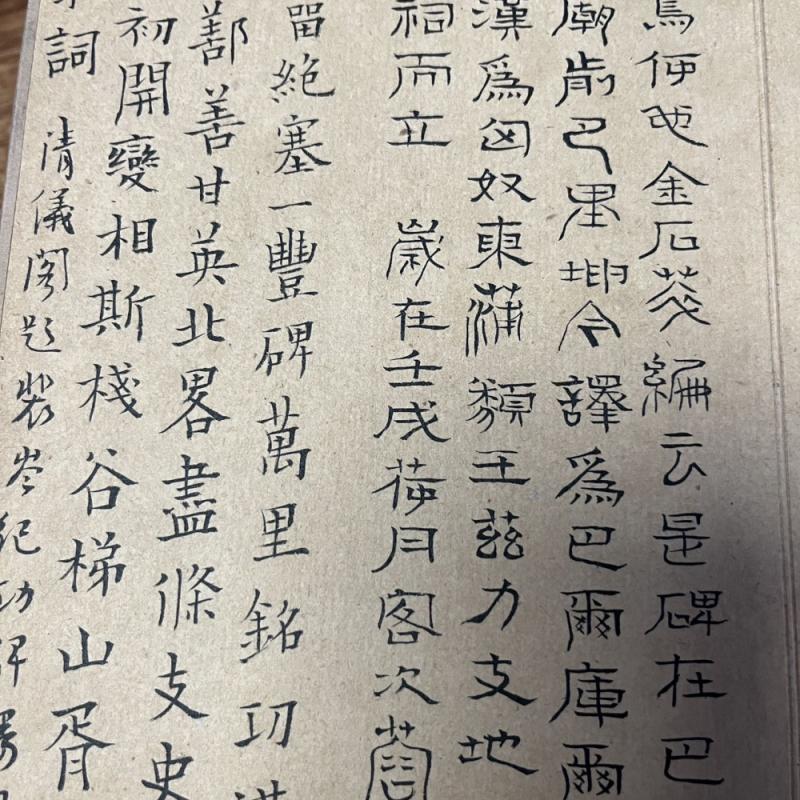 使也金石萃編云是碑在巴
廟前巴里坤今譯爲巴爾庫爾
漢爲匈奴東蒲類王茲力支地
祠而立 歲在壬戌荷月客次
留絕塞一豐碑萬里銘功
鄯善甘英北畧盡條支史
初開變相斯棧谷梯山胥
詞 清儀閣題裴岑紀功碑